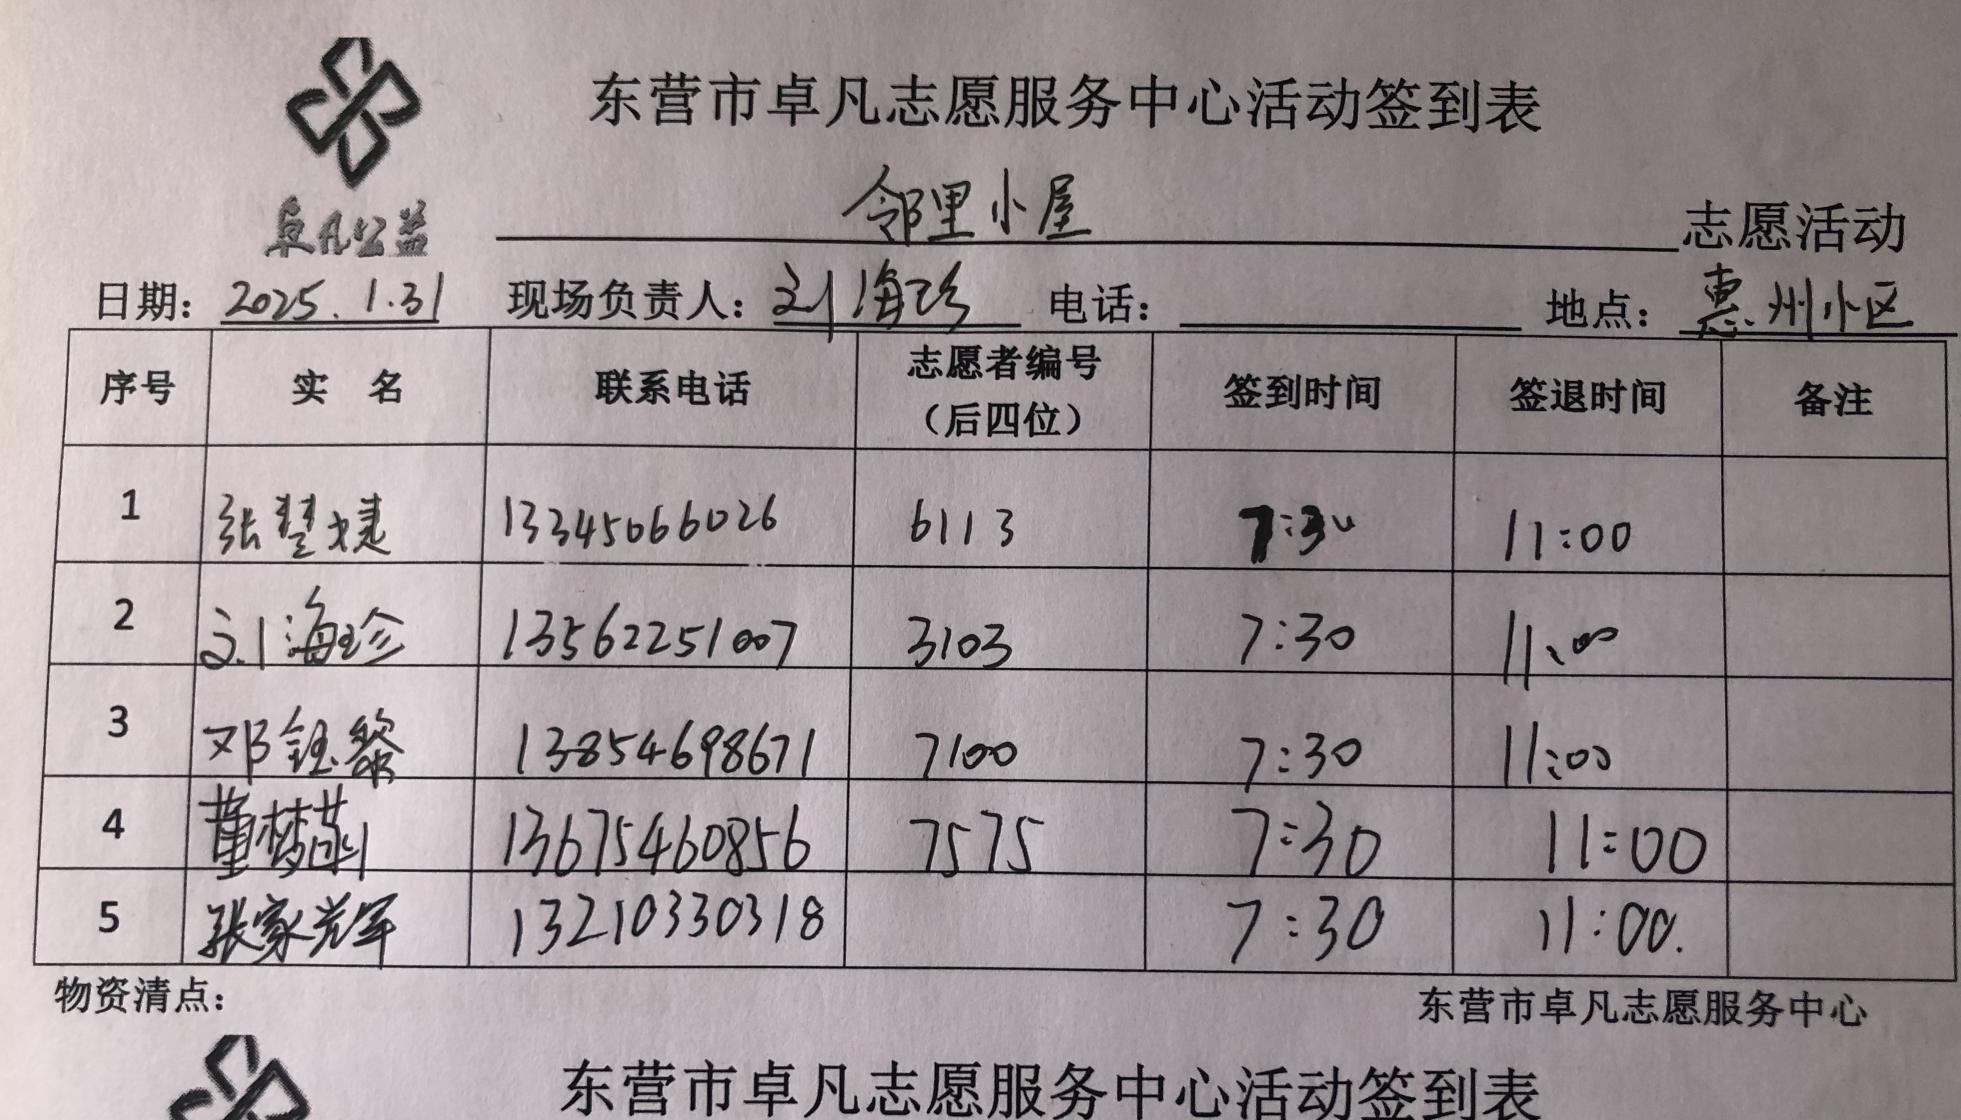 东营市卓凡志愿服务中心活动签到表
卓凡公益
邻里小屋 志愿活动
日期：2025.1.31 现场负责人：刘海珍 电话： 地点：惠州小区
序号 实 名 联系电话 志愿者编号（后四位） 签到时间 签退时间 备注
1 张慧婕 13345066026 6113 7:30 11:00
2 刘海珍 13562251007 3103 7:30 11:00
3 邓钰黎 13854698671 7100 7:30 11:00
4 董梦 13675460856 7575 7:30 11:00
5 张家辉 13210330318 7:30 11:00.
物资清点： 东营市卓凡志愿服务中心
东营市卓凡志愿服务中心活动签到表